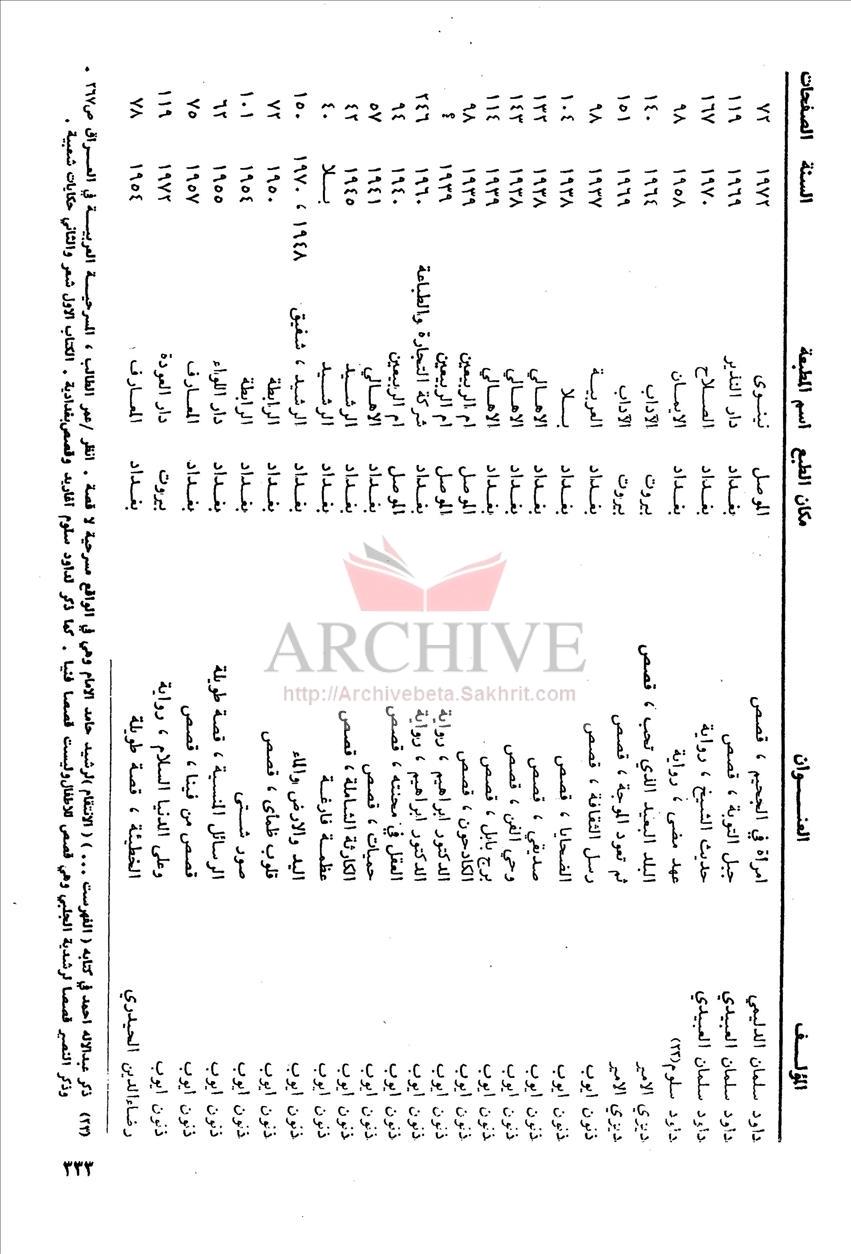 المؤلف العنوان مكان الطبع اسم المطبعة السنة الصفحات
داود سلمان الدليمي امرأة في الجحيم ، قصص الموصل نينوى ١٩٧٢ ٧٢
داود سلمان العبيدي جبل التوبة ، قصص بغداد دار النذير ١٩٦٩ ١١٩
داود سلمان العبيدي حديث الشيخ ، رواية بغداد الصلاح ١٩٧٠ ١٦٧
داود سلوم(٢٣) عهد مضى ، رواية بغداد الايمان ١٩٥٨ ٩٨
ديزي الامير البلد البعيد الذي تحب ، قصص بيروت الآداب ١٩٦٤ ١٤٠
ديزي الامير ثم تعود الموجة ، قصص بيروت الآداب ١٩٦٩ ١٥١
ذنون ايوب رسل الثقافة ، قصص بغداد العربية ١٩٣٧ ٩٨
ذنون ايوب الضحايا ، قصص بغداد بلا ١٩٣٨ ١٠٤
ذنون ايوب صديقي ، قصص بغداد الاهالي ١٩٣٨ ١٣٢
ذنون ايوب وحي الفن ، قصص بغداد الاهالي ١٩٣٨ ١٤٣
ذنون ايوب برج بابل ، قصص بغداد الاهالي ١٩٣٩ ١١٤
ذنون ايوب الكادحون ، قصص الموصل ام الربيعين ١٩٣٩ ٩٨
ذنون ايوب الدكتور ابراهيم ، رواية الموصل ام الربيعين ١٩٣٩ ؟
ذنون ايوب الدكتور ابراهيم ، رواية بغداد شركة التجارة والطباعة ١٩٦٠ ٢٤٦
ذنون ايوب العقل في محنته ، قصص الموصل ام الربيعين ١٩٤٠ ٩٤
ذنون ايوب حميات ، قصص بغداد الاهالي ١٩٤١ ٥٧
ذنون ايوب الكارثة الشاملة ، قصص بغداد الرشيد ١٩٤٥ ٤٢
ذنون ايوب عظمة فارغة بغداد الرشيد بلا ٤٠
ذنون ايوب اليد والارض والماء بغداد الرشيد ، شفيق ١٩٤٨ ، ١٩٧٠ ١٥٠
ذنون ايوب قلوب ظمأى ، قصص بغداد الرابطة ١٩٥٠ ٧٢
ذنون ايوب صور شتى بغداد الرابطة ١٩٥٤ ١٠١
ذنون ايوب الرسائل المنسية ، قصة طويلة بغداد دار اللواء ١٩٥٥ ٦٢
ذنون ايوب قصص من فينا ، قصص بغداد المعارف ١٩٥٧ ٧٥
ذنون ايوب وعلى الدنيا السلام ، رواية بيروت دار العودة ١٩٧٢ ١١٩
رضاءالدين الحيدري الخطيئة ، قصة طويلة بغداد المعارف ١٩٥٤ ٧٨
(٢٣) ذكر عبدالاله احمد في كتابه ( الفهرست ... ) ( الانتقام )لرشيد حامد الامام وهي في الواقع مسرحية لا قصة . انظر /عمر الطالب ، المسرحية العربية في العراق ص٢٦٧ .
وذكر النصير قصصا لرشدية الجلبي وهي قصص للاطفال وليست قصصا فنيا . كما ذكر لداود سلوم اغاريد وقصص بغدادية . الكتاب الاول شعر والثاني حكايات شعبية .
٣٣٣
ARCHIVE
http://Archivebeta.Sakhrit.com